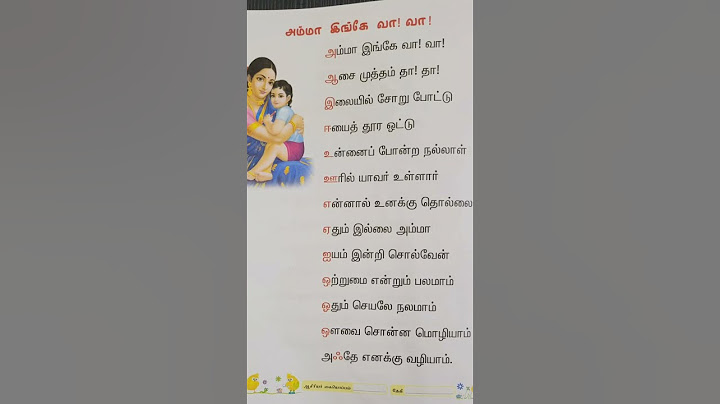 அம்மா இங்கே வா! வா!
அம்மா இங்கே வா! வா!
ஆசை முத்தம் தா! தா!
இலையில் சோறு போட்டு
ஈயைத் தூர ஒட்டு
உன்னைப் போன்ற நல்லாள்
ஊரில் யாவர் உள்ளார்
என்னால் உனக்கு தொல்லை
ஏதும் இல்லை அம்மா
ஐயம் இன்றி சொல்வேன்
ஒற்றுமை என்றும் பலமாம்
ஒதும் செயலே நலமாம்
ஒளவை சொன்ன மொழியாம்
அஃதே எனக்கு வழியாம்.
ஆசிரியர் கையொப்பம் தேதி